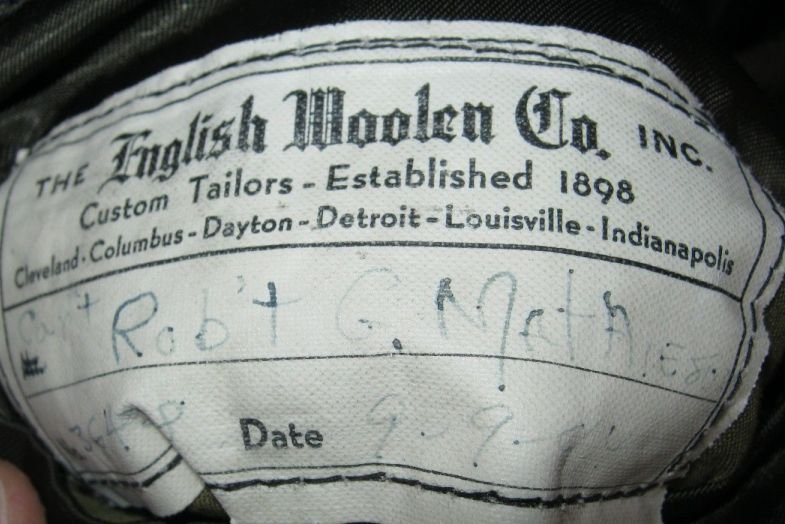 THE English Woolen Co. INC.
Custom Tailors - Established 1898
Cleveland - Columbus - Dayton - Detroit - Louisville - Indianapolis
Cap't Rob't G. Mathies.
Date 9-9-